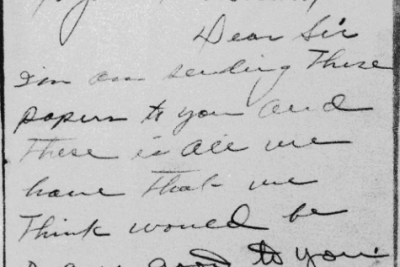 Dear Sir
I'm am sending These
papers to you and
These is all we
have that we
Think would be
any good to you.